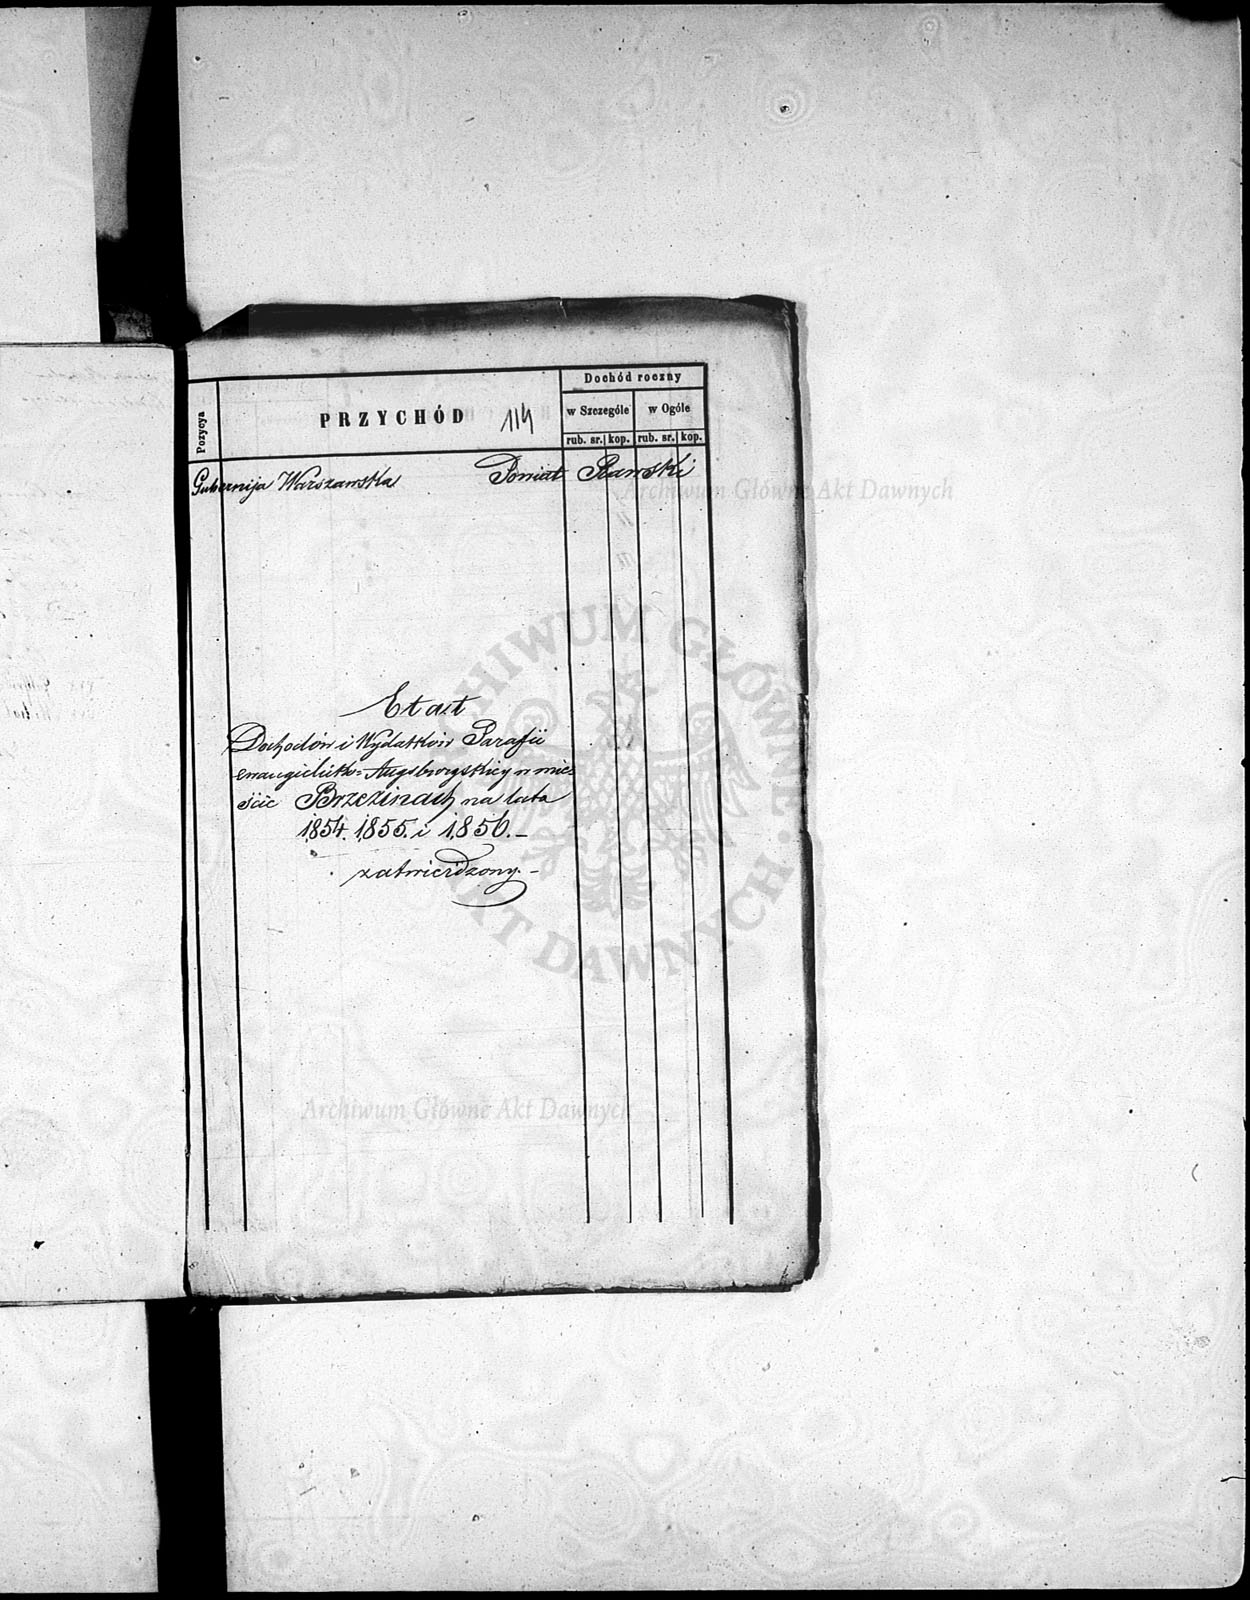 Dochód roczny
Pozycya
PRZYCHÓD
114
w Szczególe
w Ogóle
rub. sr.
kop.
rub. sr.
kop.
Gubernija Warszawska Powiat Rawski
Archiwum Główne Akt Dawnych
Etat
Dochodów i Wydatków Parafii
ewangielicko-Augsburgskiej w mie=
ście Brzezinach na lata
1854. 1855. i 1856.-
zatwierdzony.-
ARCHIWUM GŁÓWNE AKT DAWNYCH
Archiwum Główne Akt Dawnych